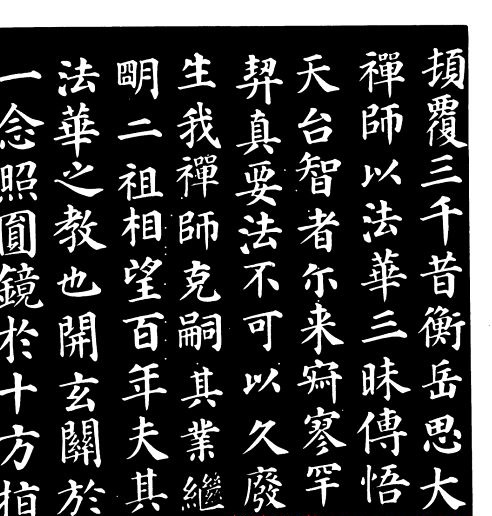 頂覆三千昔衡岳思大
禪師以法華三昧傳悟
天台智者尒来寂寥罕
契真要法不可以久廢
生我禪師克嗣其業繼
明二祖相望百年夫其
法華之教也開玄關於
一念照圓鏡於十方指